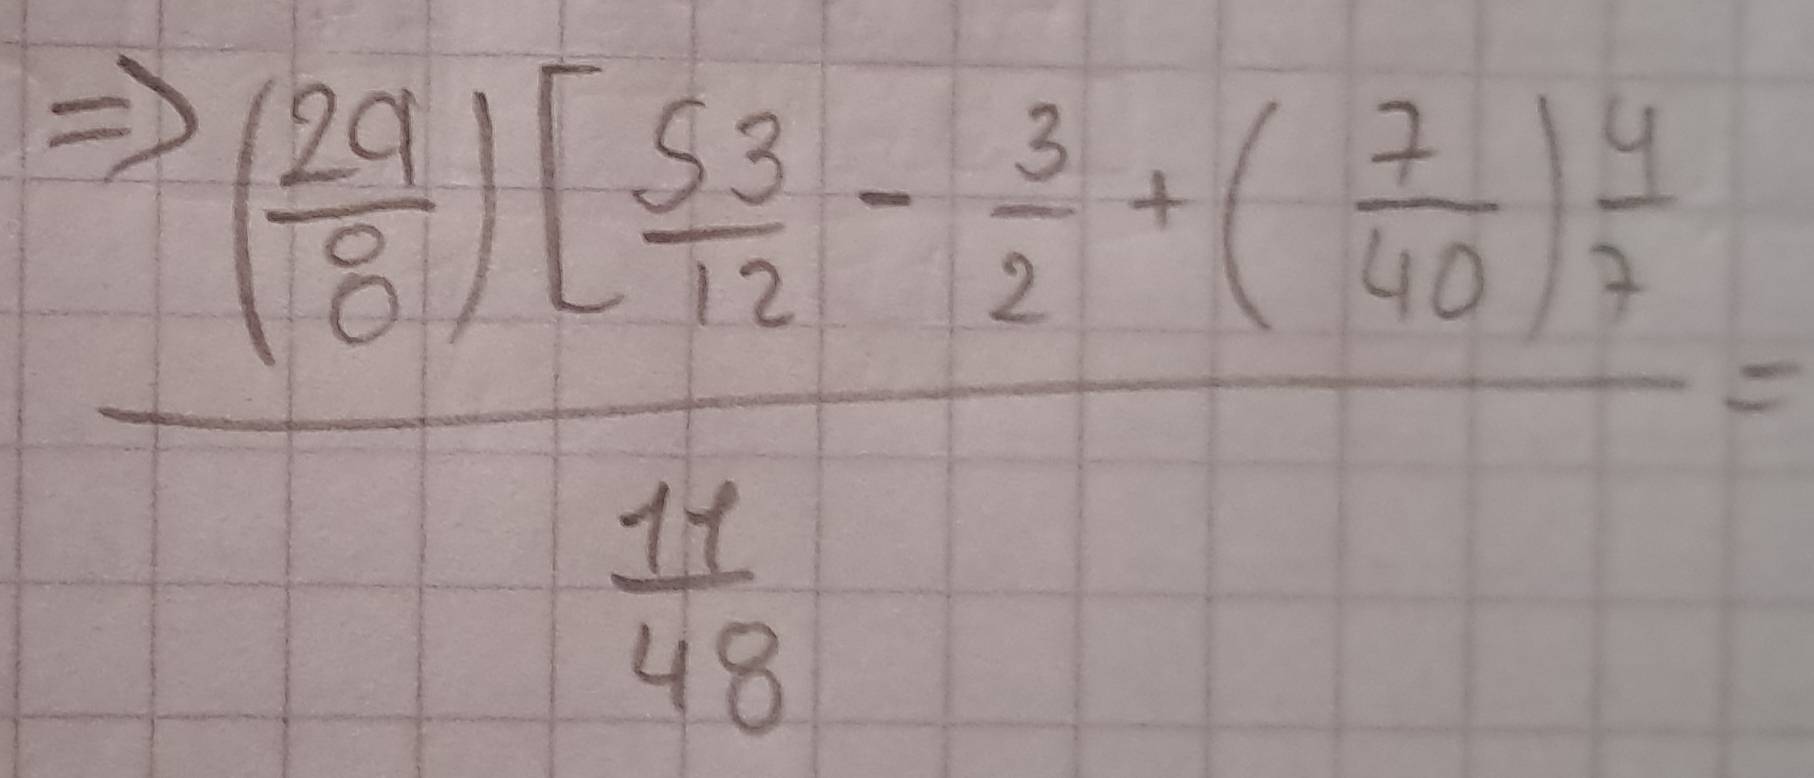 ⇒ (29/8) [53/12 - 3/2 + (7/40) 4/7
=
11/48